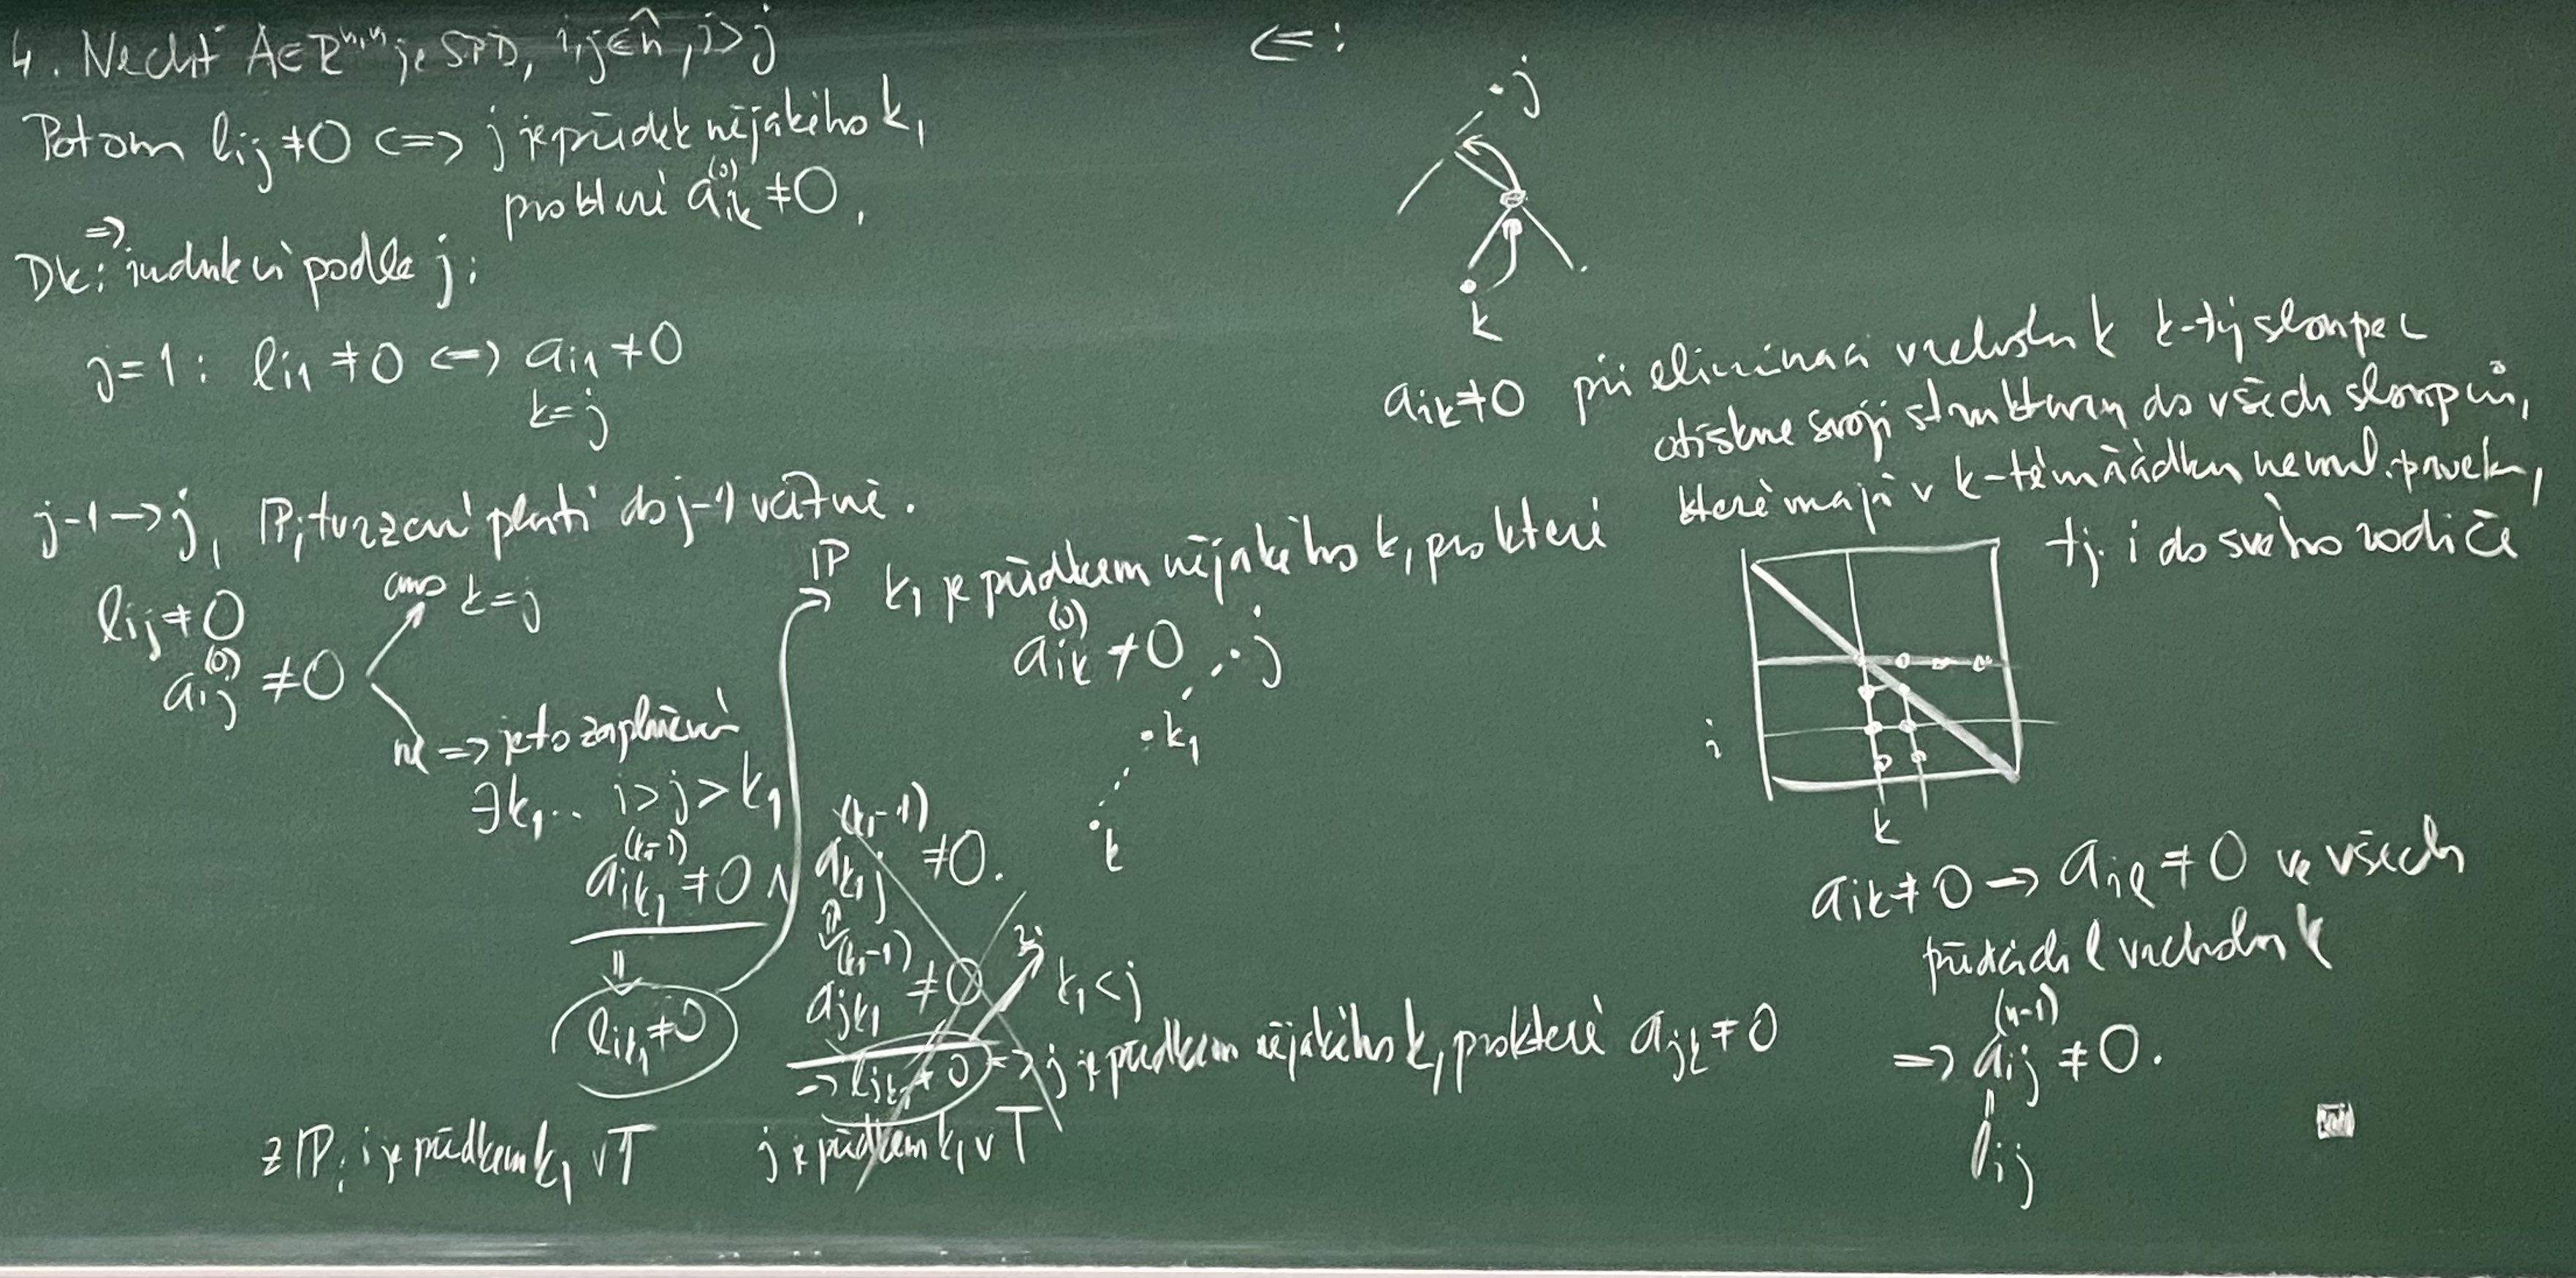 4. Nechť A∈R^{n,n} je SPD, i,j∈n̂, i>j
Potom l_{ij} ≠ 0 <=> j je předek nějakého k,
pro které a_{ik}^{(0)} ≠ 0.
=>
Dk: indukcí podle j:
j=1: l_{i1} ≠ 0 <=> a_{i1} ≠ 0
k=j
j-1 → j, IP: tvrzení platí do j-1 včetně.
l_{ij} ≠ 0
a_{ij}^{(0)} ≠ 0
ano k=j
ne => je to zaplnění
∃k_1.. i>j>k_1
a_{ik_1}^{(k_1-1)} ≠ 0 ∧ a_{k_1j}^{(k_1-1)} ≠ 0.
⇓
l_{ik_1} ≠ 0
⇕
a_{jk_1}^{(k_1-1)} ≠ 0
=> l_{jk_1} ≠ 0 => j je předkem nějakého k, pro které a_{jk} ≠ 0
3:
k_1 < j
z IP: i je předkem k_1 v T
j je předkem k_1 v T
IP
k_1 je předkem nějakého k, pro které
a_{ik}^{(0)} ≠ 0
j
k_1
k
<=:
j
k
a_{ik} ≠ 0 při eliminaci vrcholu k k-tý sloupec
otiskne svoji strukturu do všech sloupců,
které mají v k-tém řádku nenul. prvek,
tj. i do svého rodiče
i
k
a_{ik} ≠ 0 → a_{il} ≠ 0 ve všech
předcích l vrcholu k
=> a_{ij}^{(n-1)} ≠ 0.
l_{ij}